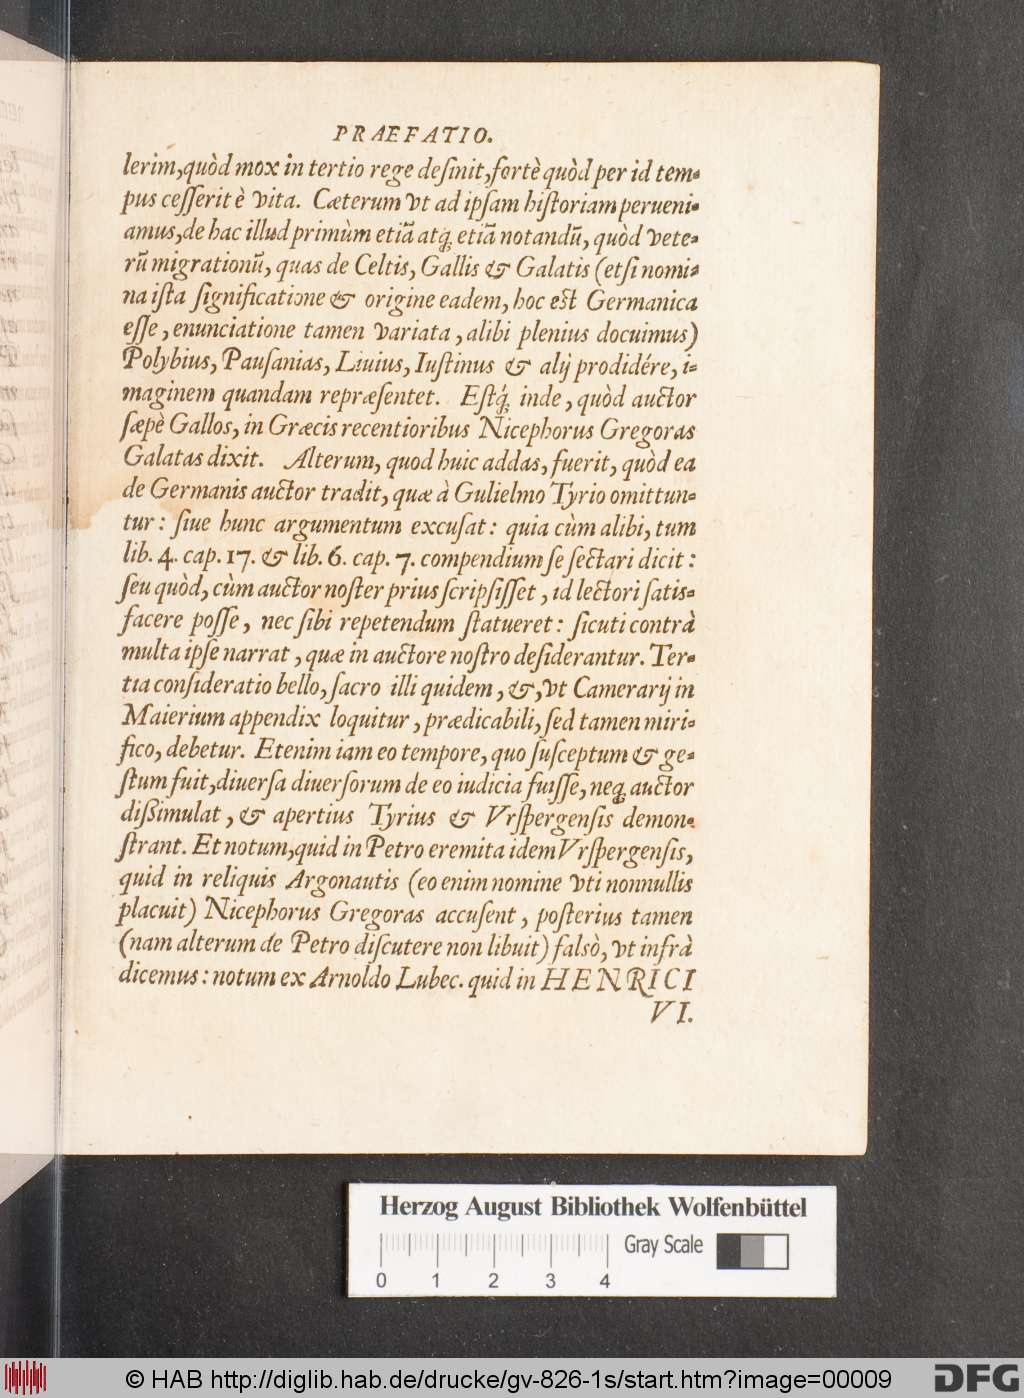 PRAEFATIO.
lerim, quòd mox in tertio rege desinit, fortè quòd per id tem-
pus cesserit è vita. Cæterum vt ad ipsam historiam perueni-
amus, de hac illud primùm etiā atq; etiā notandū, quòd vete-
rū migrationū, quas de Celtis, Gallis & Galatis (etsi nomi-
na ista significatione & origine eadem, hoc est Germanica
esse, enunciatione tamen variata, alibi plenius docuimus)
Polybius, Pausanias, Liuius, Iustinus & alij prodidére, i-
maginem quandam repræsentet. Estq́; inde, quòd auctor
sæpè Gallos, in Græcis recentioribus Nicephorus Gregoras
Galatas dixit. Alterum, quod huic addas, fuerit, quòd ea
de Germanis auctor tradit, quæ à Gulielmo Tyrio omittun-
tur: siue hunc argumentum excusat: quia cùm alibi, tum
lib. 4. cap. 17. & lib. 6. cap. 7. compendium se sectari dicit:
seu quòd, cùm auctor noster prius scripsisset, id lectori satis-
facere posse, nec sibi repetendum statueret: sicuti contrà
multa ipse narrat, quæ in auctore nostro desiderantur. Ter-
tia consideratio bello, sacro illi quidem, &, vt Camerarij in
Maierium appendix loquitur, prædicabili, sed tamen miri-
fico, debetur. Etenim iam eo tempore, quo susceptum & ge-
stum fuit, diuersa diuersorum de eo iudicia fuisse, neq; auctor
dißimulat, & apertius Tyrius & Vrspergensis demon-
strant. Et notum, quid in Petro eremita idem Vrspergensis,
quid in reliquis Argonautis (eo enim nomine vti nonnullis
placuit) Nicephorus Gregoras accusent, posterius tamen
(nam alterum de Petro discutere non libuit) falsò, vt infrà
dicemus: notum ex Arnoldo Lubec. quid in HENRICI
VI.
Herzog August Bibliothek Wolfenbüttel
Gray Scale
0 1 2 3 4
© HAB http://diglib.hab.de/drucke/gv-826-1s/start.htm?image=00009
DFG